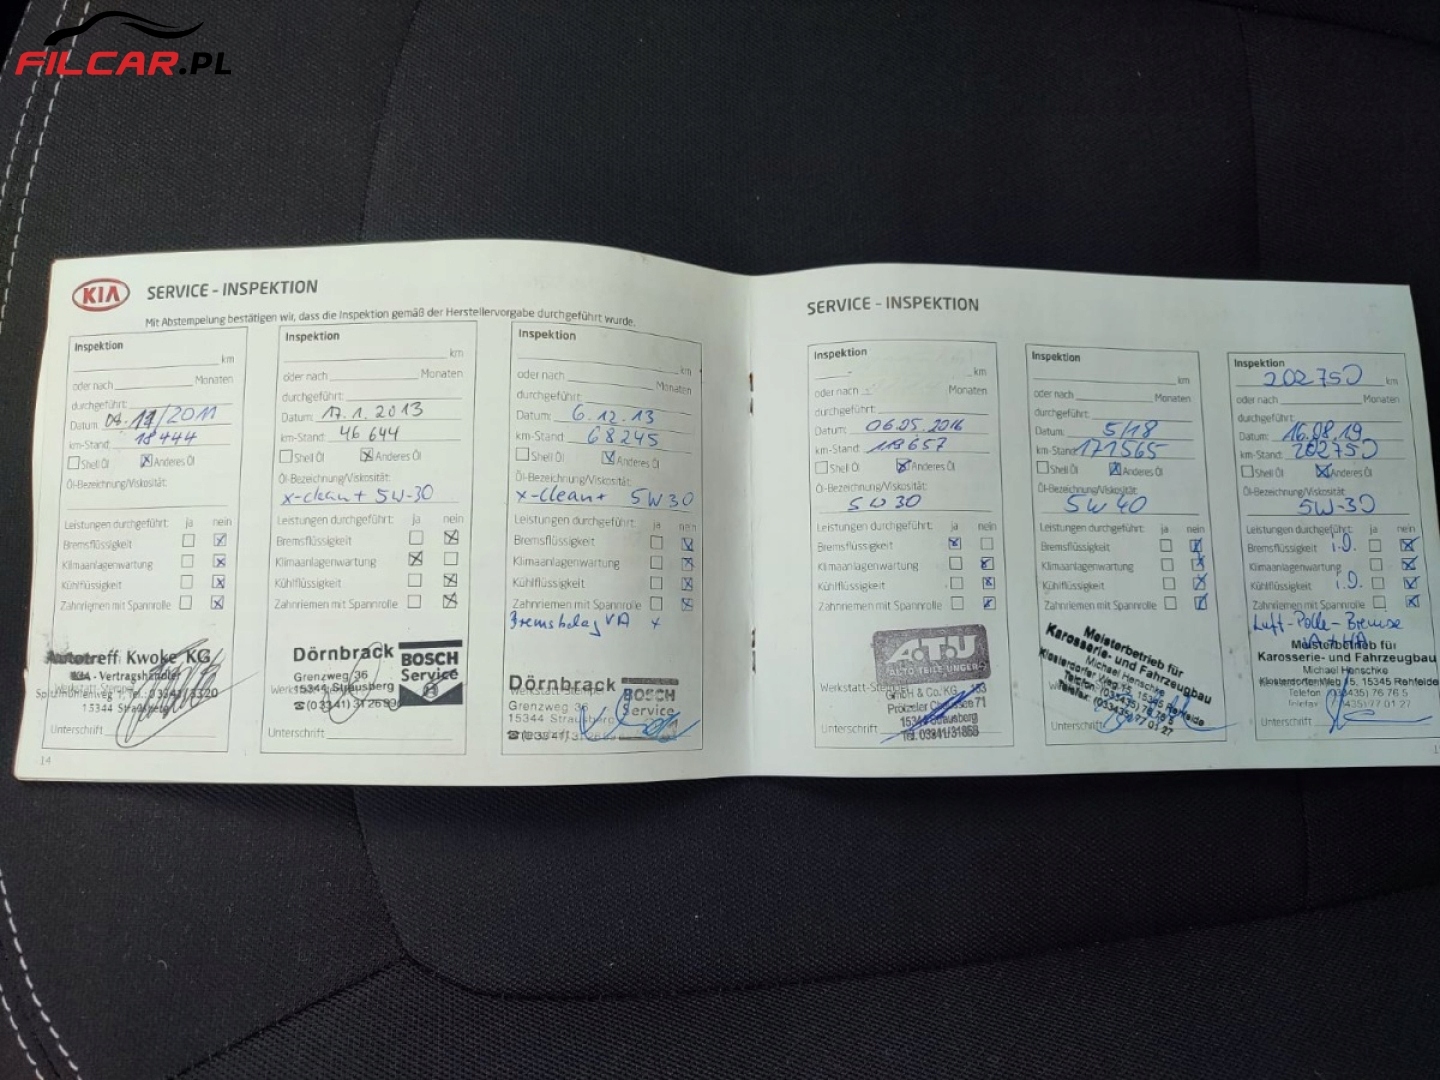 FILCAR.PL
KIA SERVICE - INSPEKTION
Mit Abstempelung bestätigen wir, dass die Inspektion gemäß der Herstellervorgabe durchgeführt wurde.
Inspektion
km
oder nach Monaten
durchgeführt:
Datum: 04.11/2011
km-Stand: 18444
Shell Öl Anderes Öl
Öl-Bezeichnung/Viskosität:
Leistungen durchgeführt: ja nein
Bremsflüssigkeit
Klimaanlagenwartung
Kühlflüssigkeit
Zahnriemen mit Spannrolle
Autotreff Kwoke KG
KIA - Vertragshändler
15344
Unterschrift
14
Inspektion
km
oder nach Monaten
durchgeführt:
Datum: 17.1.2013
km-Stand: 46644
Shell Öl Anderes Öl
Öl-Bezeichnung/Viskosität:
x-clean+ 5W-30
Leistungen durchgeführt: ja nein
Bremsflüssigkeit
Klimaanlagenwartung
Kühlflüssigkeit
Zahnriemen mit Spannrolle
Dörnbrack BOSCH
Service
Grenzweg 36
15344 Strausberg
Unterschrift
Inspektion
km
oder nach Monaten
durchgeführt:
Datum: 6.12.13
km-Stand 68245
Shell Öl Anderes Öl
Öl-Bezeichnung/Viskosität:
x-clean+ 5W30
Leistungen durchgeführt: ja nein
Bremsflüssigkeit
Klimaanlagenwartung
Kühlflüssigkeit
Zahnriemen mit Spannrolle
Bremsbelag VA x
Dörnbrack BOSCH
Service
Grenzweg 36
15344 Strausberg
Unterschrift
SERVICE - INSPEKTION
Inspektion
km
oder nach Monaten
durchgeführt:
Datum: 06.05.2016
km-Stand: 118657
Shell Öl Anderes Öl
Öl-Bezeichnung/Viskosität:
5W30
Leistungen durchgeführt: ja nein
Bremsflüssigkeit
Klimaanlagenwartung
Kühlflüssigkeit
Zahnriemen mit Spannrolle
A.T.U
AUTO TEILE UNGER
Werkstatt-Stempel
GmbH & Co. KG
15344 Strausberg
Tel. 03341/31868
Unterschrift
Inspektion
km
oder nach Monaten
durchgeführt:
Datum: 5/18
km-Stand: 171565
Shell Öl Anderes Öl
Öl-Bezeichnung/Viskosität:
5W40
Leistungen durchgeführt: ja nein
Bremsflüssigkeit
Klimaanlagenwartung
Kühlflüssigkeit
Zahnriemen mit Spannrolle
Meisterbetrieb für
Karosserie- und Fahrzeugbau
Michael Henschke
Klosterdorfer Weg 15, 15345 Rehfelde
Telefon (033435) 76 76 5
Telefax: (033435) 77 01 27
Unterschrift
Inspektion
202750 km
oder nach Monaten
durchgeführt:
Datum: 16.08.19
km-Stand: 202750
Shell Öl Anderes Öl
Öl-Bezeichnung/Viskosität:
5W-30
Leistungen durchgeführt: ja nein
Bremsflüssigkeit i.O.
Klimaanlagenwartung
Kühlflüssigkeit i.O.
Zahnriemen mit Spannrolle
Luft-Polle-Bremse
VA + HA
Meisterbetrieb für
Karosserie- und Fahrzeugbau
Michael Henschke
Klosterdorfer Weg 15, 15345 Rehfelde
Telefon (033435) 76 76 5
Telefax (033435) 77 01 27
Unterschrift